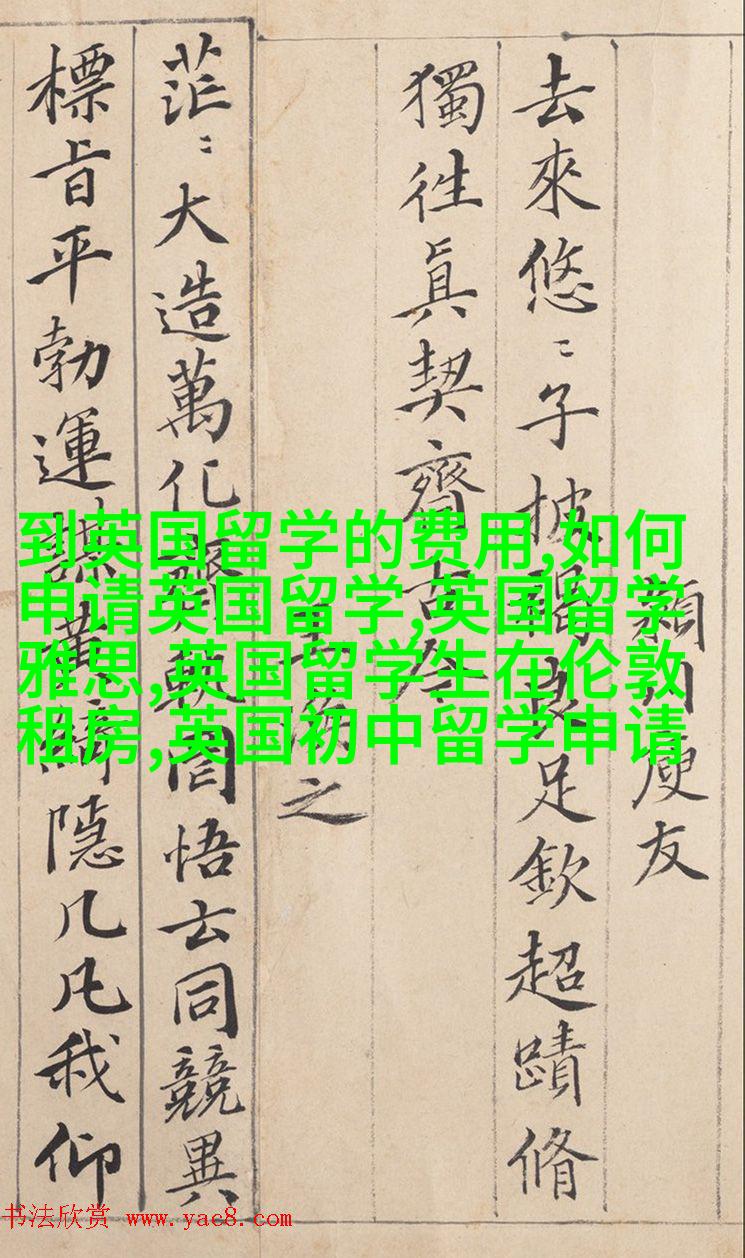 庾友
去來悠〻子披褐良足欽超蹟脩
獨往真契齊古今
之
茫〻大造萬化齊軌罔悟玄同競異
標旨平勃運謀黃綺隱几凡我仰
到英国留学的费用,如何
申请英国留学,英国留学
雅思,英国留学生在伦敦
租房,英国初中留学申请
书法欣赏 www.yac8.com